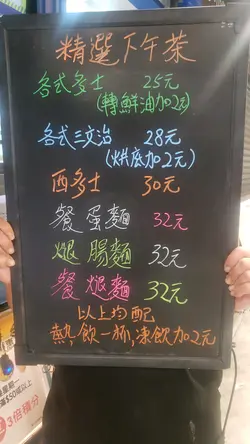 精選下午茶
各式多士 25元
(轉鮮油加2元)
各式三文治 28元
(烘底加2元)
西多士 30元
餐蛋麵 32元
腿腸麵 32元
餐腿麵 32元
以上均配
熱飲一杯,凍飲加2元
滿$50或以上
3倍積分